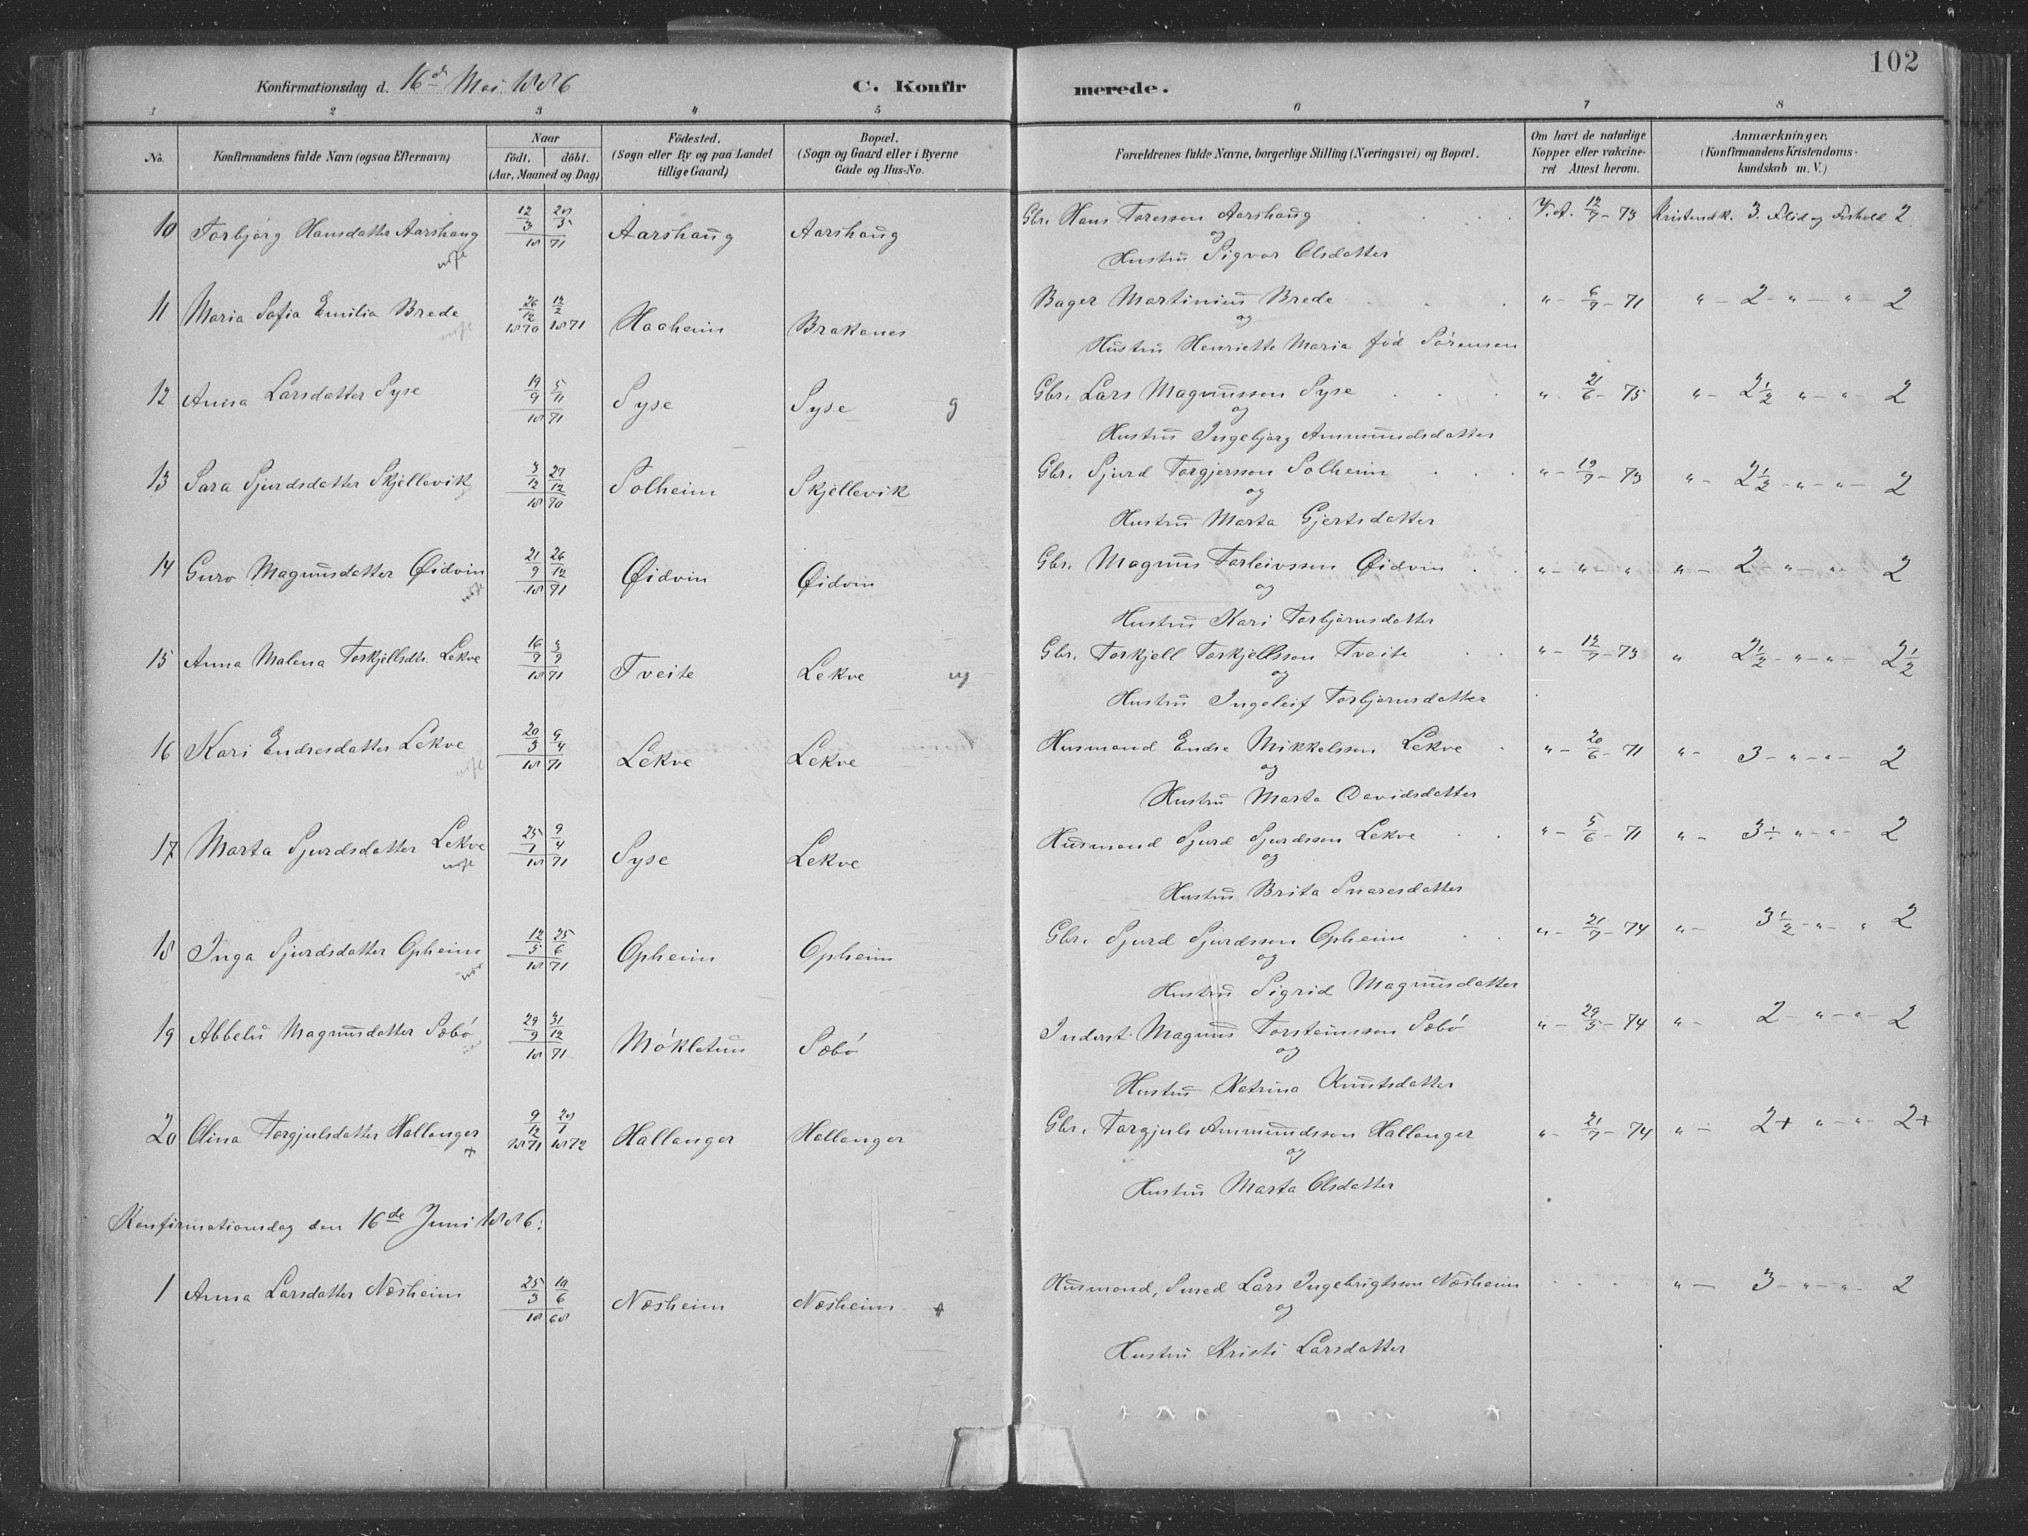 102
Konfirmationsdag d. 16de Mai 1886 C. Konfirmerede.
1 2 3 4 5 6 7 8
No. Konfirmandens fulde Navn (ogsaa Efternavn) Naar födt. döbt. (Aar, Maaned og Dag) Födested. (Sogn eller By og paa Landet tillige Gaard) Bopæl. (Sogn og Gaard eller i Byerne Gade og Hus-No. Forældrenes fulde Navne, borgerlige Stilling (Næringsvei) og Bopæl. Om havt de naturlige Kopper eller vakcineret Attest herom. Anmærkninger. (Konfirmandens Kristendomskundskab m. V.)
10 Torbjörg Hansdatter Aarshaug 12/3 28/5 1871 Aarshaug Aarshaug Gbr. Hans Toresson Aarshaug V.A. 12/7 - 73 Kristendk. 3. Flid og Forhold 2
og
Hustru Sigvor Olsdatter
11 Maria Sofia Emilia Brede 26/12 1870 12/2 1871 Haaheim Brakanes Bager Martinius Brede " - 6/9 - 71 " - 2 - " - " - 2
og
Hustru Henriette Maria föd Sörensen
12 Anna Larsdatter Syse 19/9 5/11 1871 Syse Syse g Gbr. Lars Magnusson Syse " 21/6 - 75 " - 2 1/2 " - " - 2
og
Hustru Ingebjörg Ammundsdatter
13 Sara Sjurdsdatter Skjellevik 3/12 27/12 1870 Solheim Skjellevik Gbr. Sjurd Torgjersson Solheim " - 19/7 - 73 " - 2 1/2 - " - " - 2
og
Hustru Marta Gjertsdatter
14 Guro Magnusdatter Øidvin 21/9 26/12 1871 Øidvin Øidvin Gbr. Magnus Torleivsson Øidvin " " " " - 2 - " - " - 2
og
Hustru Kari Torbjörnsdatter
15 Anna Malena Torkjellsdtr. Lekve 16/7 3/9 1871 Tveite Lekve Gbr. Torkjell Torkjellsson Tveite " - 12/7 - 73 " 2 1/2 - " - " - 2 1/2
og
Hustru Ingeleif Torbjörnsdatter
16 Kari Endresdatter Lekve 20/3 9/4 1871 Lekve Lekve Husmand Endre Mikkelsson Lekve " - 20/6 - 71 " - 3 - " - " - 2
og
Hustru Marta Davidsdatter
17 Marta Sjurdsdatter Lekve 25/1 9/4 1871 Syse Lekve Husmand Sjurd Sjurdsson Lekve " - 5/6 - 71 " - 3 ÷ " - " - 2
og
Hustru Brita Snaresdatter
18 Inga Sjurdsdatter Opheim 12/5 25/6 1871 Opheim Opheim Gbr. Sjurd Sjurdsson Opheim " - 21/7 - 74 " - 3 1/2 - " - " 2
og
Hustru Sigrid Magnusdatter
19 Abbelu Magnusdatter Sæbö 29/9 31/12 1871 Mökletun Sæbö Inderst. Magnus Torsteinsson Sæbö " - 29/5 - 74 " - 2 - " - " - 2
og
Hustru Katrina Knutsdatter
20 Olina Torgjulsdatter Hallanger 9/12 1871 28/1 1872 Hallanger Hallanger Gbr. Torgjuls Ammundsson Hallanger " - 21/7 - 74 " - 2+ " - " - 2+
og
Hustru Marta Olsdatter
Konfirmationsdag den 16de Juni 1886:
1 Anna Larsdatter Næsheim 25/3 19/6 1868 Næsheim Næsheim + Husmand, Smed Lars Ingebrigtsson Næsheim " - 3 - " - " - 2
og
Hustru Kristi Larsdatter